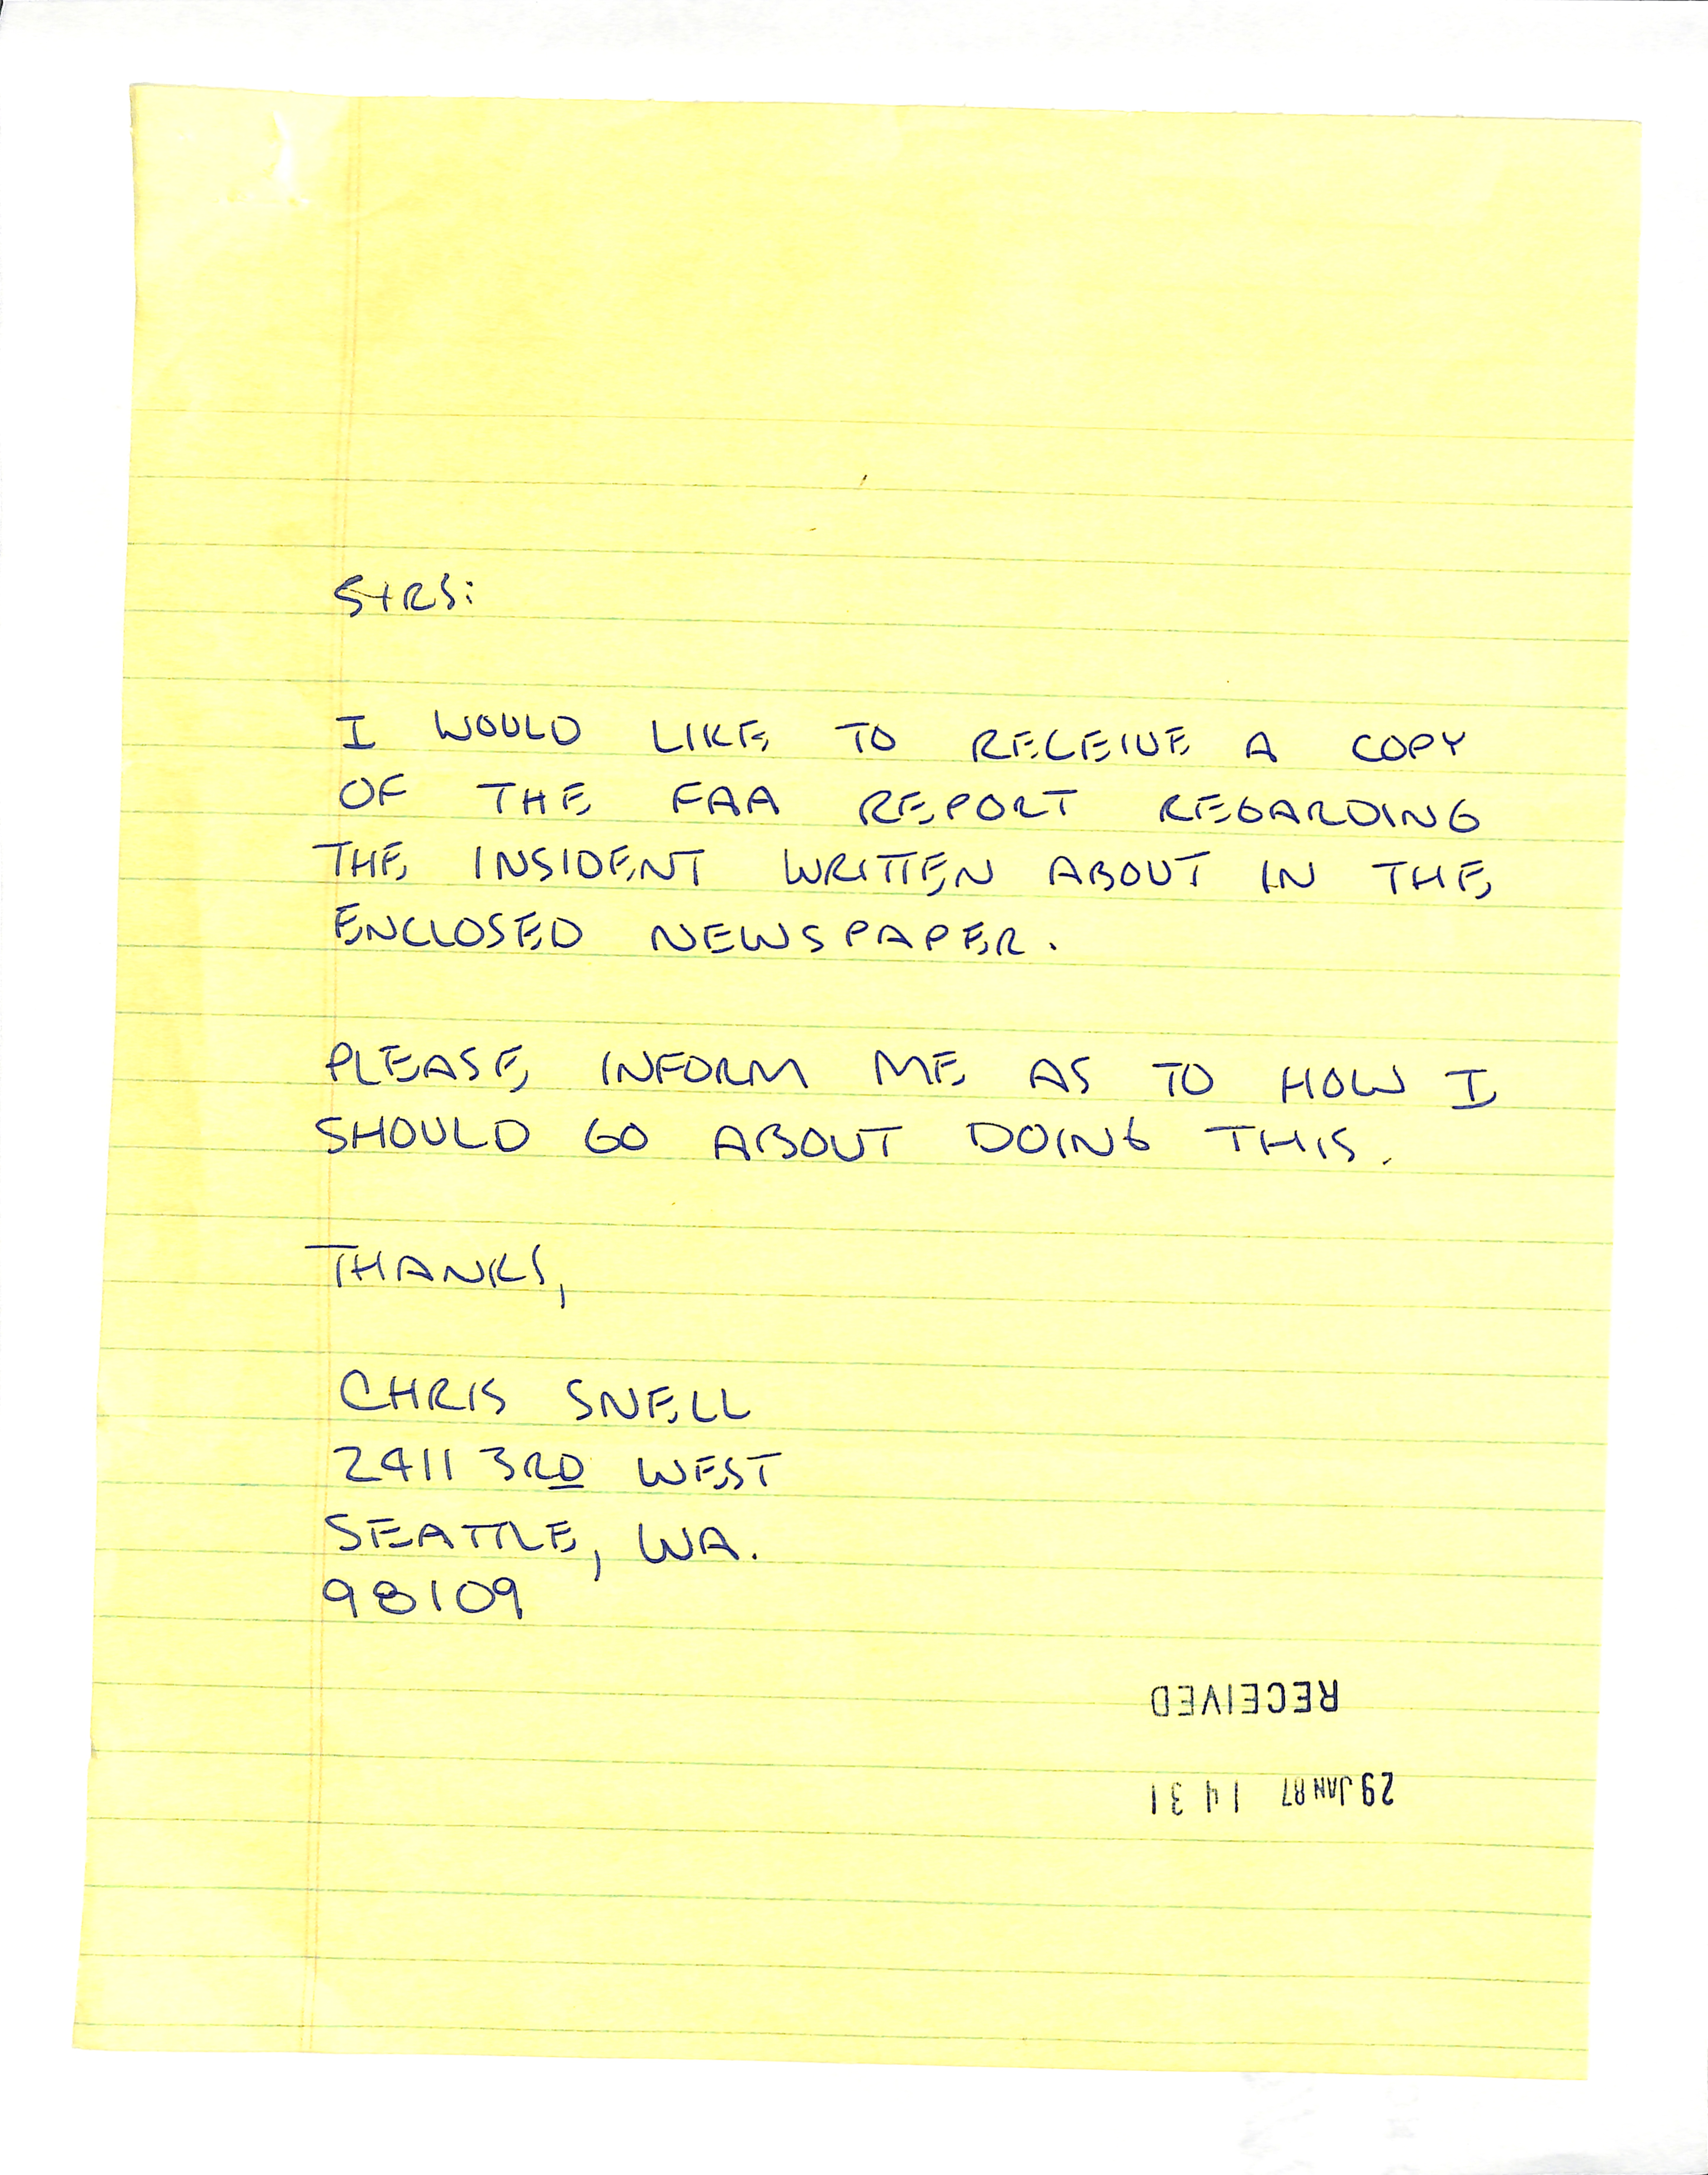 SIRS:
I WOULD LIKE TO RECEIVE A COPY
OF THE FAA REPORT REGARDING
THE INSIDENT WRITTEN ABOUT IN THE
ENCLOSED NEWSPAPER.
PLEASE INFORM ME AS TO HOW I
SHOULD GO ABOUT DOING THIS.
THANKS,
CHRIS SNELL
2411 3RD WEST
SEATTLE, WA.
98109
RECEIVED
29 JAN 87 14 31